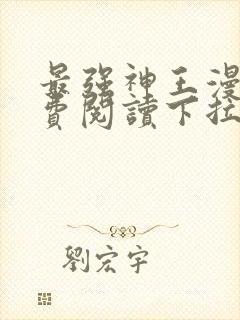 最強神王漫
費閱讀下拉
劉宏宇